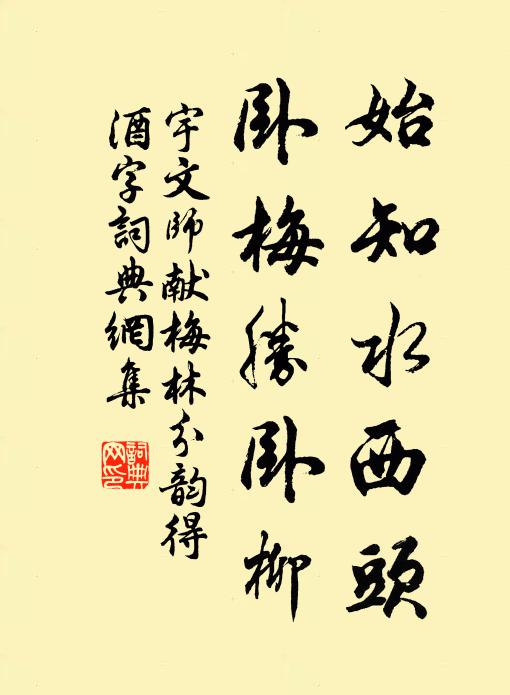 始知水西頭
卧梅勝卧柳
宇文師献梅林分韵得
酒字詞典網集
詞典
网印